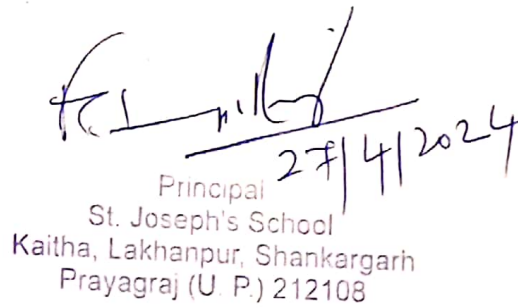 27/4/2024
Principal
St. Joseph's School
Kaitha, Lakhanpur, Shankargarh
Prayagraj (U. P.) 212108